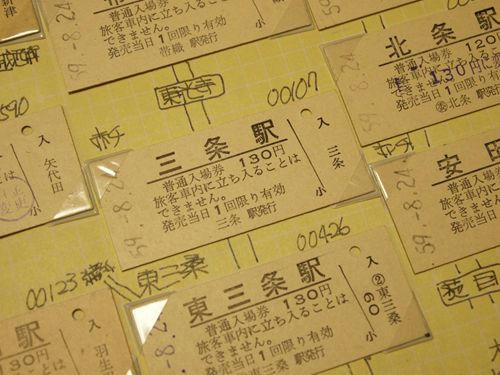 普通入場券
旅客車内に立ち入ることは
できません。
発売当日1回限り有効
帯織 駅発行
59.-8.24
小
北条駅
普通入場券 120円
130円
北条 駅発行
東光寺
00107
590
入
矢代田
小
三条駅
130円
普通入場券
旅客車内に立ち入ることは
できません。
発売当日1回限り有効
三条 駅発行
入
三条
小
59.-8.24
安田
普通入場券
旅客車内に
できません。
発売当日1
59.-8.24
00426
00123
東三条
東三条駅
130円
普通入場券
旅客車内に立ち入ることは
できません。
発売当日1回限り有効
東三条 駅発行
入
②東三条
60
小
-8.2
駅
130円
入
羽生